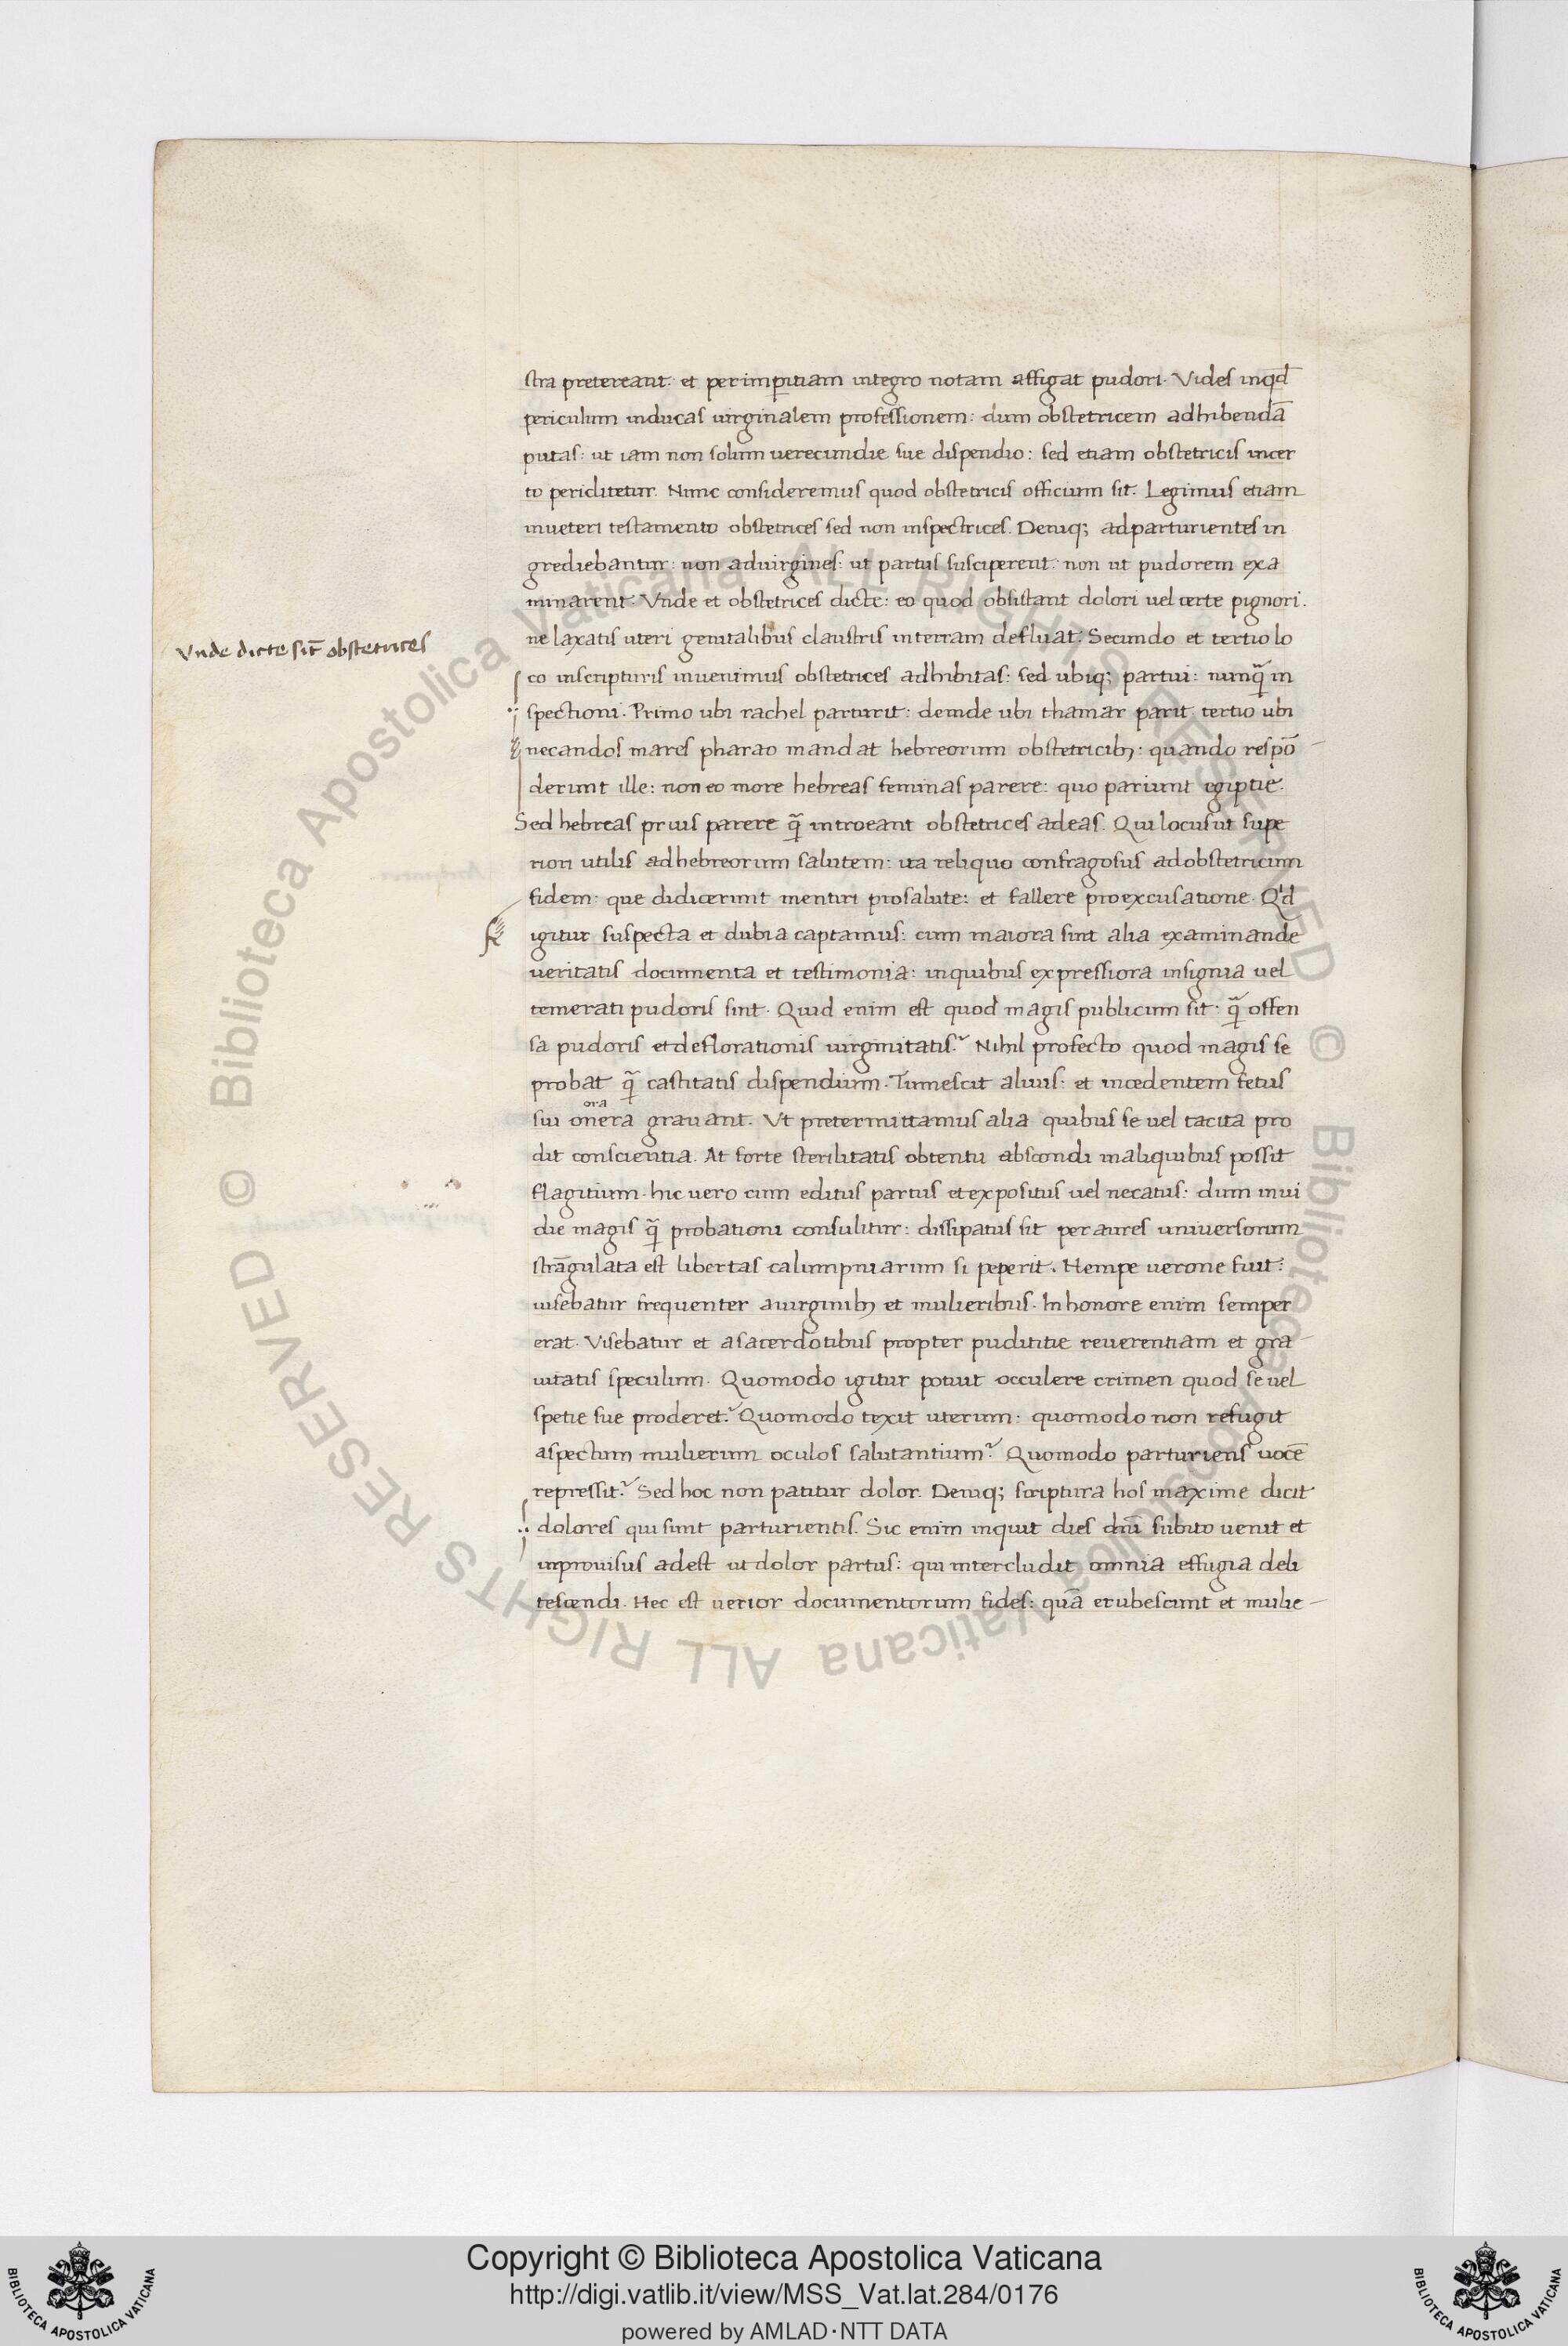 stra pretereant: et per imperitiam integro notam affigat pudori. Vides in qd̄
periculum inducas uirginalem professionem: dum obstetricem adhibendā
putas: ut iam non solum uerecundie sue dispendio: sed etiam obstetricis incer
to periditetur. Nunc consideremus quod obstetricis officium sit. Legimus etiam
in ueteri testamento obstetrices sed non inspectrices. Deniq; ad parturientes in
grediebantur: non ad uirgines: ut partus susciperent: non ut pudorem exa
minarent. Vnde et obstetrices dicte: eo quod obsistant dolori uel certe pignori.
ne laxatis uteri genitalibus claustris in terram defluat. Secundo et tertio lo
Vnde dicte sīt obstetrices
co in scripturis inuenimus obstetrices adhibitas: sed ubiq; partui: nunq̄ in
spectioni. Primo ubi rachel parturit: deinde ubi thamar parit tertio ubi
necandos mares pharao mandat hebreorum obstetricib;: quando respō
derunt ille: non eo more hebreas feminas parere: quo pariunt egiptie.
Sed hebreas prius parere q̄ introeant obstetrices ad eas. Qui locus ut supe
riori utilis ad hebreorum salutem: ita reliquo confragosus ad obstetricum
fidem: que didicerunt mentiri pro salute: et fallere pro excusatione. Qd
igitur suspecta et dubia captamus: cum maiora sint alia examinande
ueritatis documenta et testimonia: in quibus expressiora insignia uel
temerati pudoris sint. Quid enim est quod magis publicum sit: q̄ offen
sa pudoris et deflorationis uirginitatis? Nihil profecto quod magis se
probat q̄ castitatis dispendium. Tumescit aluus: et incedentem fetus
ora
sui onera grauant. Vt pretermittamus alia quibus se uel tacita pro
dit conscientia. At forte sterilitatis obtentu abscondi in aliquibus possit
flagitium. hic uero cum editus partus et expositus uel necatus: dum inui
die magis q̄ probationi consulitur: dissipatus sit per aures uniuersorum
strāgulata est libertas calumpniarum si peperit. Nempe uerone fuit:
uisebatur frequenter a uirginib; et mulieribus. In honore enim semper
erat. Visebatur et a sacerdotibus propter pudititie reuerentiam et gra
uitatis speculum. Quomodo igitur potuit occulere crimen quod se uel
spetie sue proderet? Quomodo texit uterum: quomodo non refugit
aspectum mulierum oculos salutantium? Quomodo parturiens uocē
repressit? Sed hoc non patitur dolor. Deniq; scriptura hos maxime dicit
dolores qui sunt parturientis. Sic enim inquit dies dn̄i subito uenit et
inprouisus adest ut dolor partus: qui intercludit omnia effugia deli
tescendi. Hec est uerior documentorum fides: quā erubescunt et mulie
© Biblioteca Apostolica Vaticana ALL RIGHTS RESERVED
© Biblioteca Apostolica Vaticana ALL RIGHTS RESERVED
BIBLIOTECA APOSTOLICA VATICANA
Copyright © Biblioteca Apostolica Vaticana
http://digi.vatlib.it/view/MSS_Vat.lat.284/0176
powered by AMLAD·NTT DATA
BIBLIOTECA APOSTOLICA VATICANA